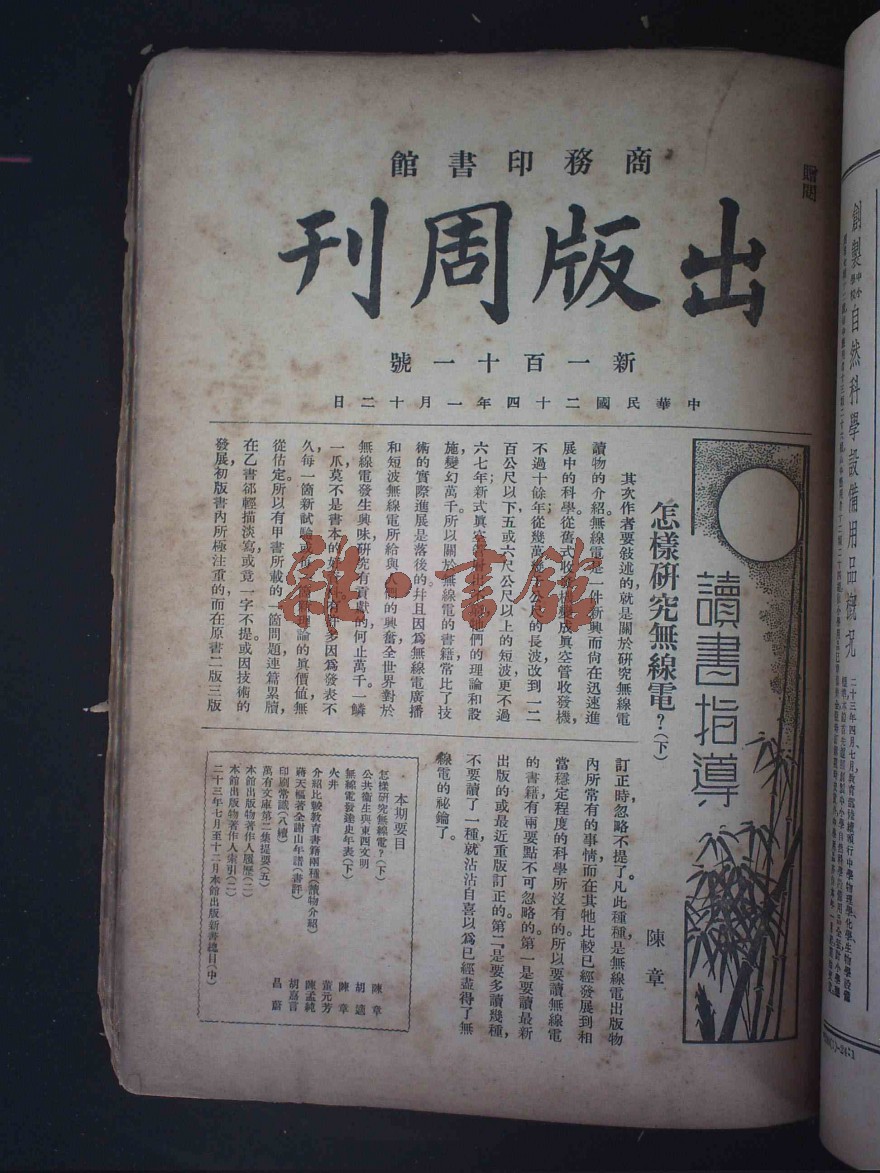 商務印書館
出版周刊
新一百十一號
中華民國二十四年一月十二日
贈閱
讀書指導
怎樣研究無線電？(下)
陳章
其次作者要敍述的，就是關於研究無線電
讀物的介紹。無線電是一件新興而尚在迅速進
展中的科學。從舊式收
成眞空管收發機，
不過十餘年；從幾萬幾千公尺的長波改到一二
百公尺以下，五或六尺公尺以上的短波更不過
六七年；新式眞空
們的理論和設
施，變幻萬千。所以關於無線電的書籍，常比了技
術的實際進展是落後的。幷且因爲無線電廣播
和短波無線電所給與人們的興奮，全世界對於
無線電發生興味，研究有貢獻的，何止萬千。一鱗
一爪，莫不是書本的
多因爲發表不
久，每一箇新試驗或
理論的眞價値無
從估定。所以有甲書所載的一箇問題，連篇累牘，
在乙書郤輕描淡寫，或竟一字不提，或因技術的
發展，初版書內所極注重的，而在原書二版三版
訂正時，忽略不提了。凡此種種，是無線電出版物
內所常有的事情，而在其牠比較已經發展到相
當穩定程度的科學所沒有的。所以要讀無線電
的書籍，有兩要點不可忽略的：第一是要讀最新
出版的或最近重版訂正的。第二是要多讀幾種，
不要讀了一種，就沾沾自喜以爲已經盡得了無
線電的祕鑰了。
本期要目
怎樣研究無線電？(下) 陳章
公共衞生與東西文明 胡適
無線電發達史年表(下) 陳章
火井 董元芳
介紹比較教育書籍兩種(讀物介紹) 陳孟純
蔣天樞著全謝山年譜(書評) 胡嘉言
印刷常識(八續) 昌蔚
萬有文庫第二集提要(五)
本館出版物著作人履歷(二)
本館出版物著作人索引(二)
二十三年七月至十二月本館出版新書總目(中)
創製中小學校自然科學設備用品概況
二十三年四月、七月，敎育部陸續頒行中學物理學化學生物學設備
雜·書館